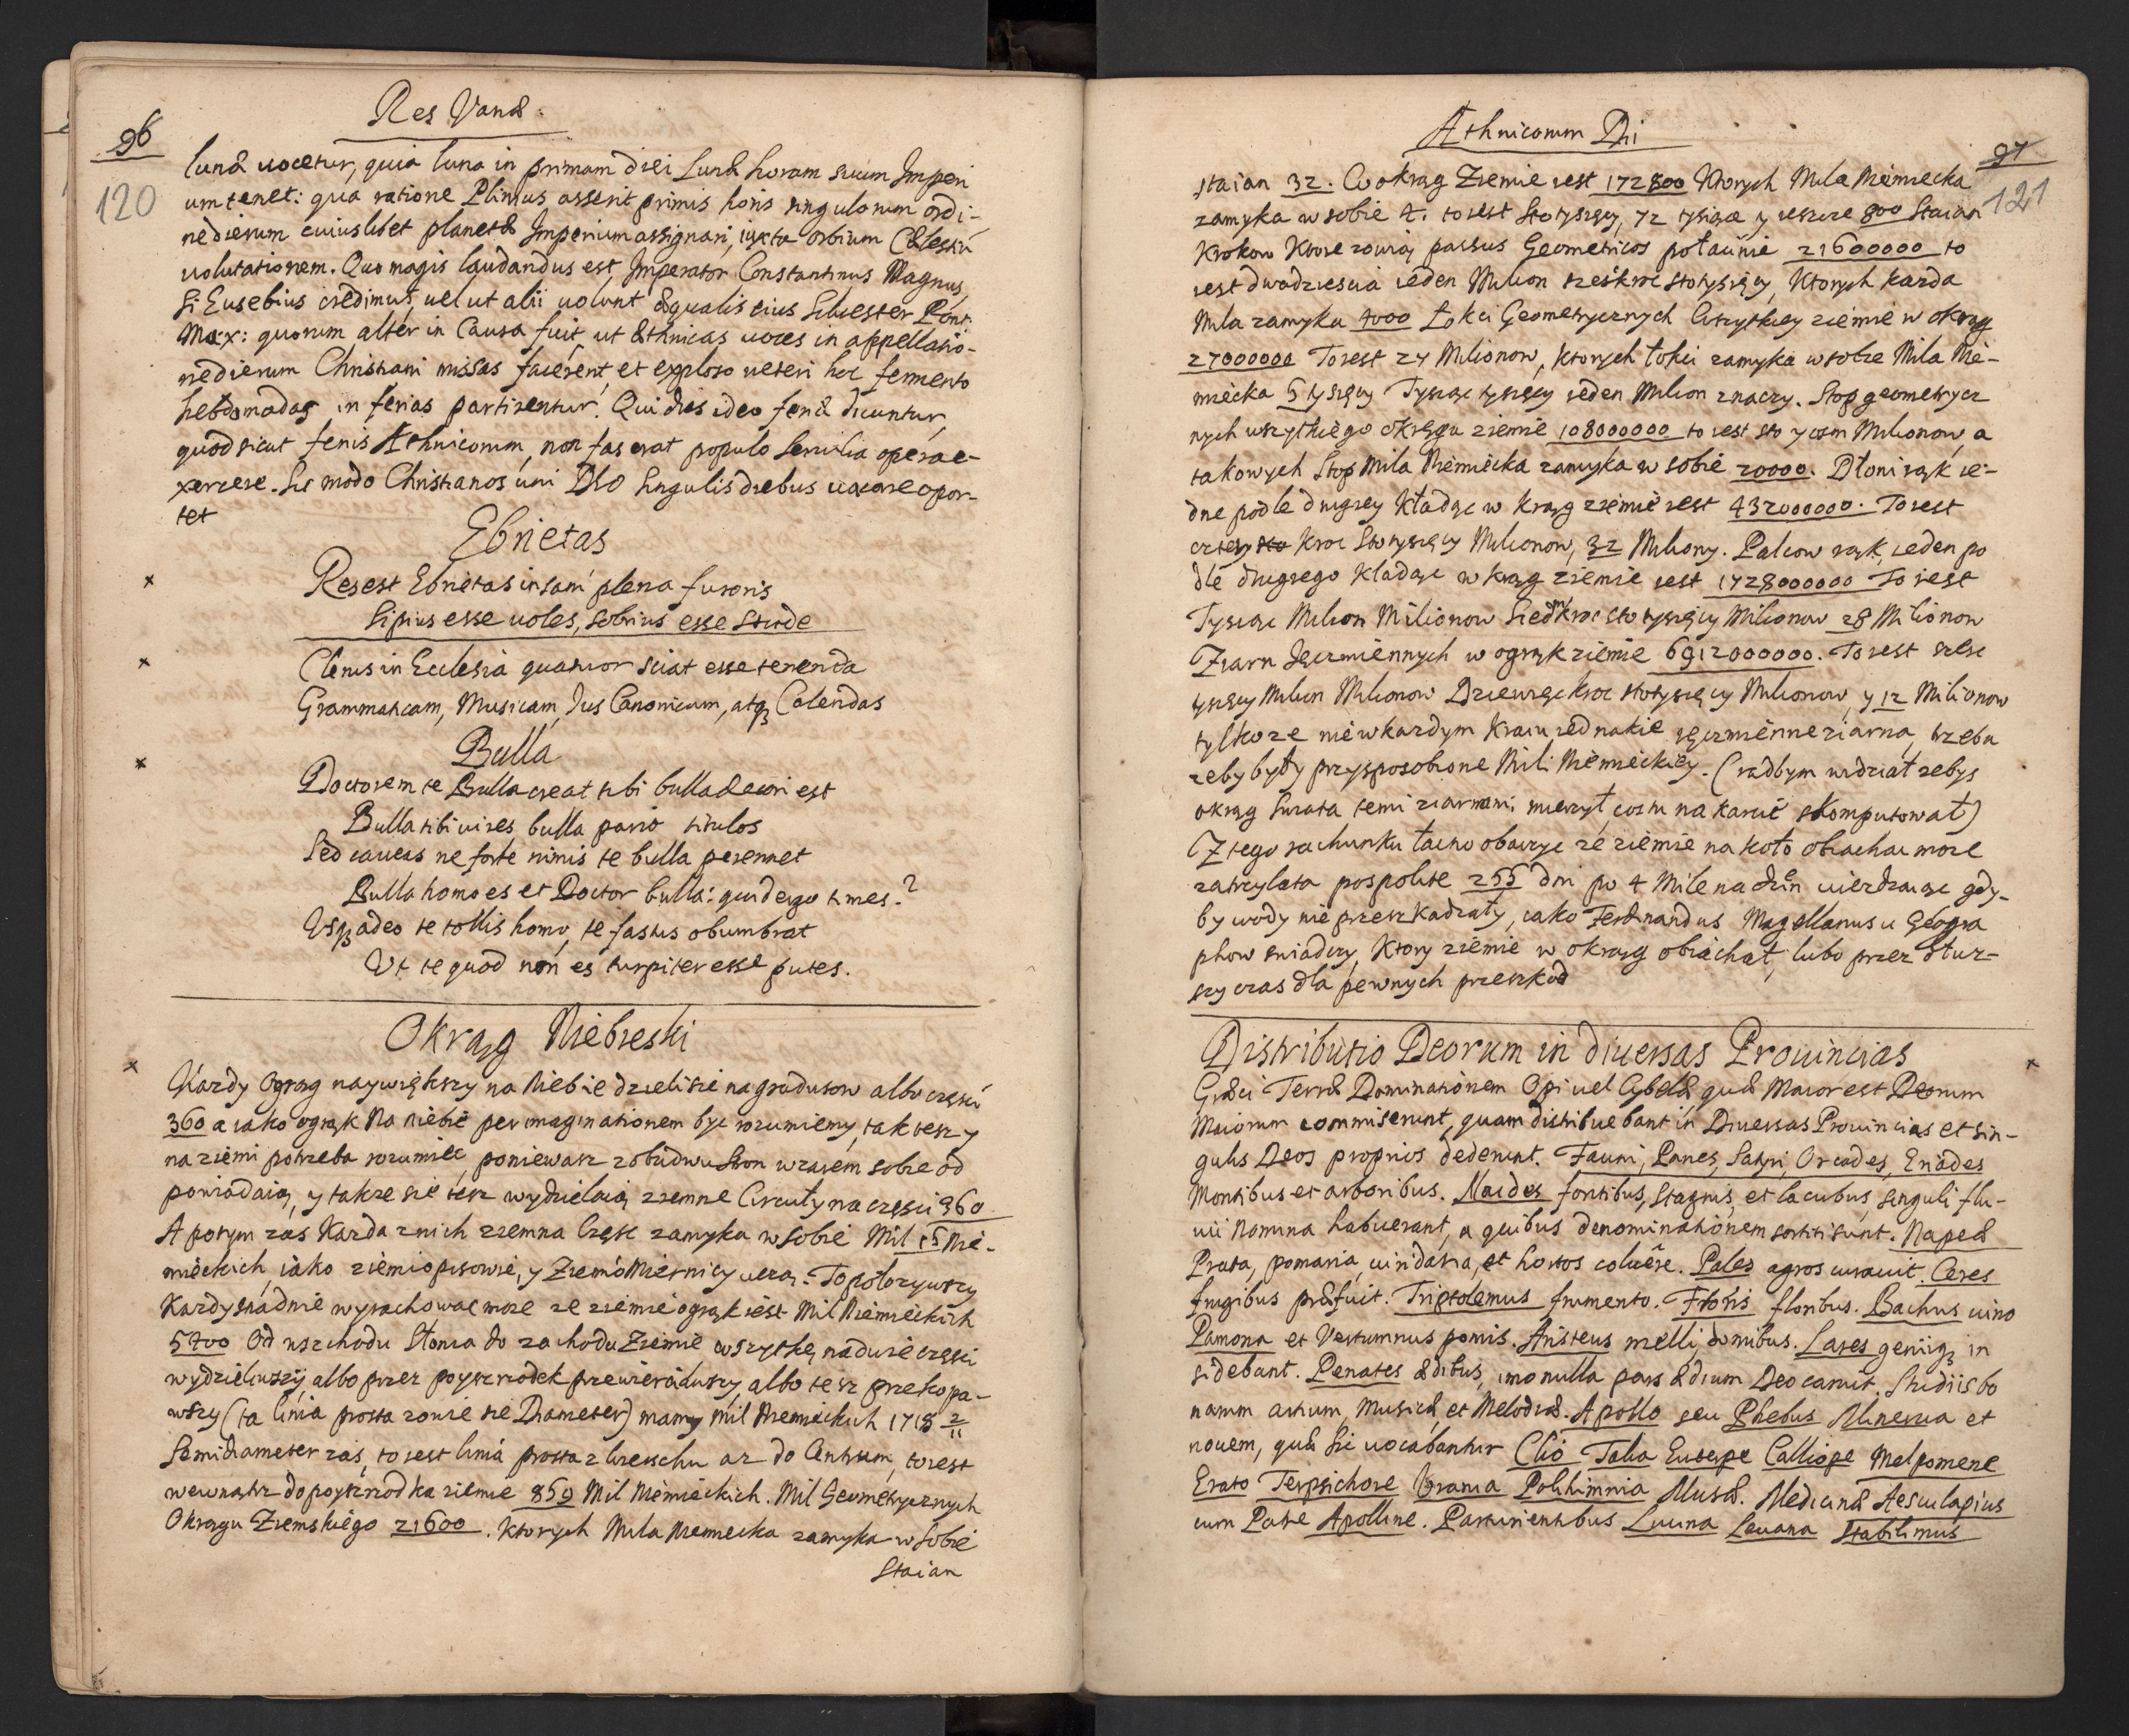 Res Vanæ
96
120
lunæ uocetur, quia luna in primam diei Lunæ horam suum Imperi
um tenet: qua ratione Plinius asserit primis horis singulorum ordi-
ne dierum cuiuslibet planetæ Imperium assignari, iuxta orbium Cælestiū
uolutationem. Quo magis laudandus est Imperator Constantinus Magnus,
si Eusebius credimus, uel ut alii uolunt æqualis eius Siluester Pont:
Max: quorum alter in Causa fuit, ut Æthnicas uoces in appellatio-
ne dierum Christiani missas facerent, et exploso ueteri hoc fermento
hebdomadas in ferias partirentur. Qui dies ideo feriæ dicuntur,
quod sicut feriis Æthnicorum, non fas erat populo seruilia opera e-
xercere. Sic modo Christianos uni DEO singulis diebus uacare opor-
tet
Ebrietas
Res est Ebrietas insani plena furoris
Si pius esse uoles, sobrius esse stude
Clerus in Ecclesia quatuor sciat esse tenenda
Grammaticam, Musicam, Jus Canonicum, atqȝ Calendas
Bulla
Doctorem te Bulla creat tibi bulla decori est
Bulla tibi uires bulla parit titulos
Sed caueas ne forte nimis te bulla perennet
Bulla homo es et Doctor bulla: quid ergo times?
Usqȝ adeo te tollis homo, te fastus obumbrat
Ut te quod non es turpiter esse putes.
Okrąg Niebieski
Kazdy Ogrąg naywiększy na Niebie dzieli się na gradusow albo części
360 a iako ogrąk na niebie per imaginationem byc rozumiemy, tak tesz y
na ziemi potrzeba rozumiec, poniewasz z obudwu stron wzaiem sobie od
powiadaią, y takze się tesz wydzielaią ziemne Circuły na części 360
A potym zas Kazda z nich ziemna Część zamyka w sobie Mil 15 Nie-
mieckich, iako ziemiopisowie, y Ziemomiernicy uczą. To położywszy
Kazdy snadnie wyrachowac moze ze ziemie ogrąk iest Mil Niemieckich
5400 Od wschodu Słonca do zachodu Ziemie wszytkę na dwie części
wydzieliwszy, albo przez poyszrzodek przewierciawszy, albo tesz przekopa-
wszy (ta linia prosta zowie się Diameter) mamy mil Niemieckich 1718 2/11
Semidiameter zas, to iest linia prosta z wierzchu az do Centrum, to iest
wewnątrz do poyszrzodka ziemie 859 Mil Niemieckich. Mil Geometrycznych
Okręgu Ziemskiego 21600. Ktorych Mila Niemiecka zamyka w sobie
Staian
Æthnicorum Dii
97
121
staian 32. W okrąg Ziemie iest 172800 Ktorych Mila Niemiecka
zamyka w sobie 4. to iest Sto tysięcy, 72 tysiące y ieszcze 800 Staian
Krokow Ktore zowią passus Geometricos połaćinie 21600000 to
iest dwadziescia ieden Milion sześkroć sto tysięcy, Ktorych kazda
Mila zamyka 4000 Łokci Geometrycznych Wszytkiey ziemie w okrąg
27000000 To iest 27 Milionow, ktorych łokci zamyka w sobie Mila Nie-
miecka 5 tysięcy Tysiąc tysięcy ieden Milion znaczy. Stop geometrycz
nych wszytkiego okręgu ziemie 108000000 to iest sto y osm Milionow, a
takowych Stop Mila Niemiecka zamyka w sobie 20000. Dłoni ręk ie-
dne podle drugiey Kładąc w krąg ziemie iest 432000000. To iest
cztery sto kroc Sto tysięcy Milionow, 32 Miliony. Palcow ręk, ieden po
dle drugiego Kładąc w krąg ziemie iest 1728000000 To iest
Tysiąc Milion Milionow Siedmkroc sto tysięcy Milionow 28 Milionow
Ziarn Jęczmiennych w ogrąk ziemie 6912000000. To iest sześc
tysięcy Milion Milionow Dziewięckroc sto tysięcy Milionow, y 12 Milionow
tylko ze nie w kazdym kraiu iednakie ięczmienne ziarna, trzeba
zeby były przysposobione Mili Niemieckiey. (radbym widział zebys
okrąg swiata temi ziarnami mierzył, cos tu na karcie skomputował)
Z tego rachunku łacno obaczyc ze ziemie na koło obiachac moze
za trzy lata pospolite 255 dni po 4 Mile na dzien uierdzaiąc gdy-
by wody nie przeszkadzały, iako Ferdinandus Magellanus u Geogra
phow swiadczy, Ktory ziemie w okrąg obiachał, lubo przez dłuz-
szy czas dla pewnych przeszkod
Distributio Deorum in diuersas Prouincias
Græci Terræ Dominationem Opi uel Cybelæ, quæ Maior est Deorum
Maiorum commiserunt, quam distribuebant in Diuersas Prouincias et sin-
gulis Deos proprios dederunt. Fauni, Panes, Satyri, Oreades, Eriades
Montibus et arboribus. Naides fontibus, stagnis, et lacubus, singuli flu-
uii Nomina habuerant, a quibus denominationem sortiti sunt. Napeæ
Prata, pomaria, uiridaria, et hortos coluêre. Pales agros curauit. Ceres
frugibus præfuit. Triptolemus frumento. Floris floribus. Bachus uino
Pamona et Vertumnus pomis. Aristeus melli, domibus. Lares geniiqȝ in
sidebant. Penates ædibus, imo nulla pars ædium Deo caruit. Studiis bo
narum artium, Musicæ, et Melodiæ. Apollo seu Phebus Minerua et
nouem, quæ sic uocabantur Clio Talia Euterpe Calliope Melpomene
Erato Terpsichore Urania Polihimnia Musæ. Medicinæ Aesculapius
cum Patre Apolline. Parturientibus Lucina Leuana Stabilimus